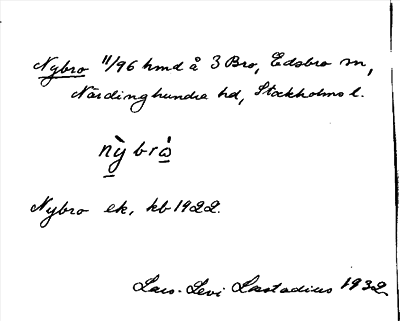 Nybro 11/96 hmd å 3 Bro, Edsbro sn,
Närdinghundra hd, Stockholms l.
nỳbrò
Nybro ek, kb 1922.
Lars-Levi Læstadius 1932